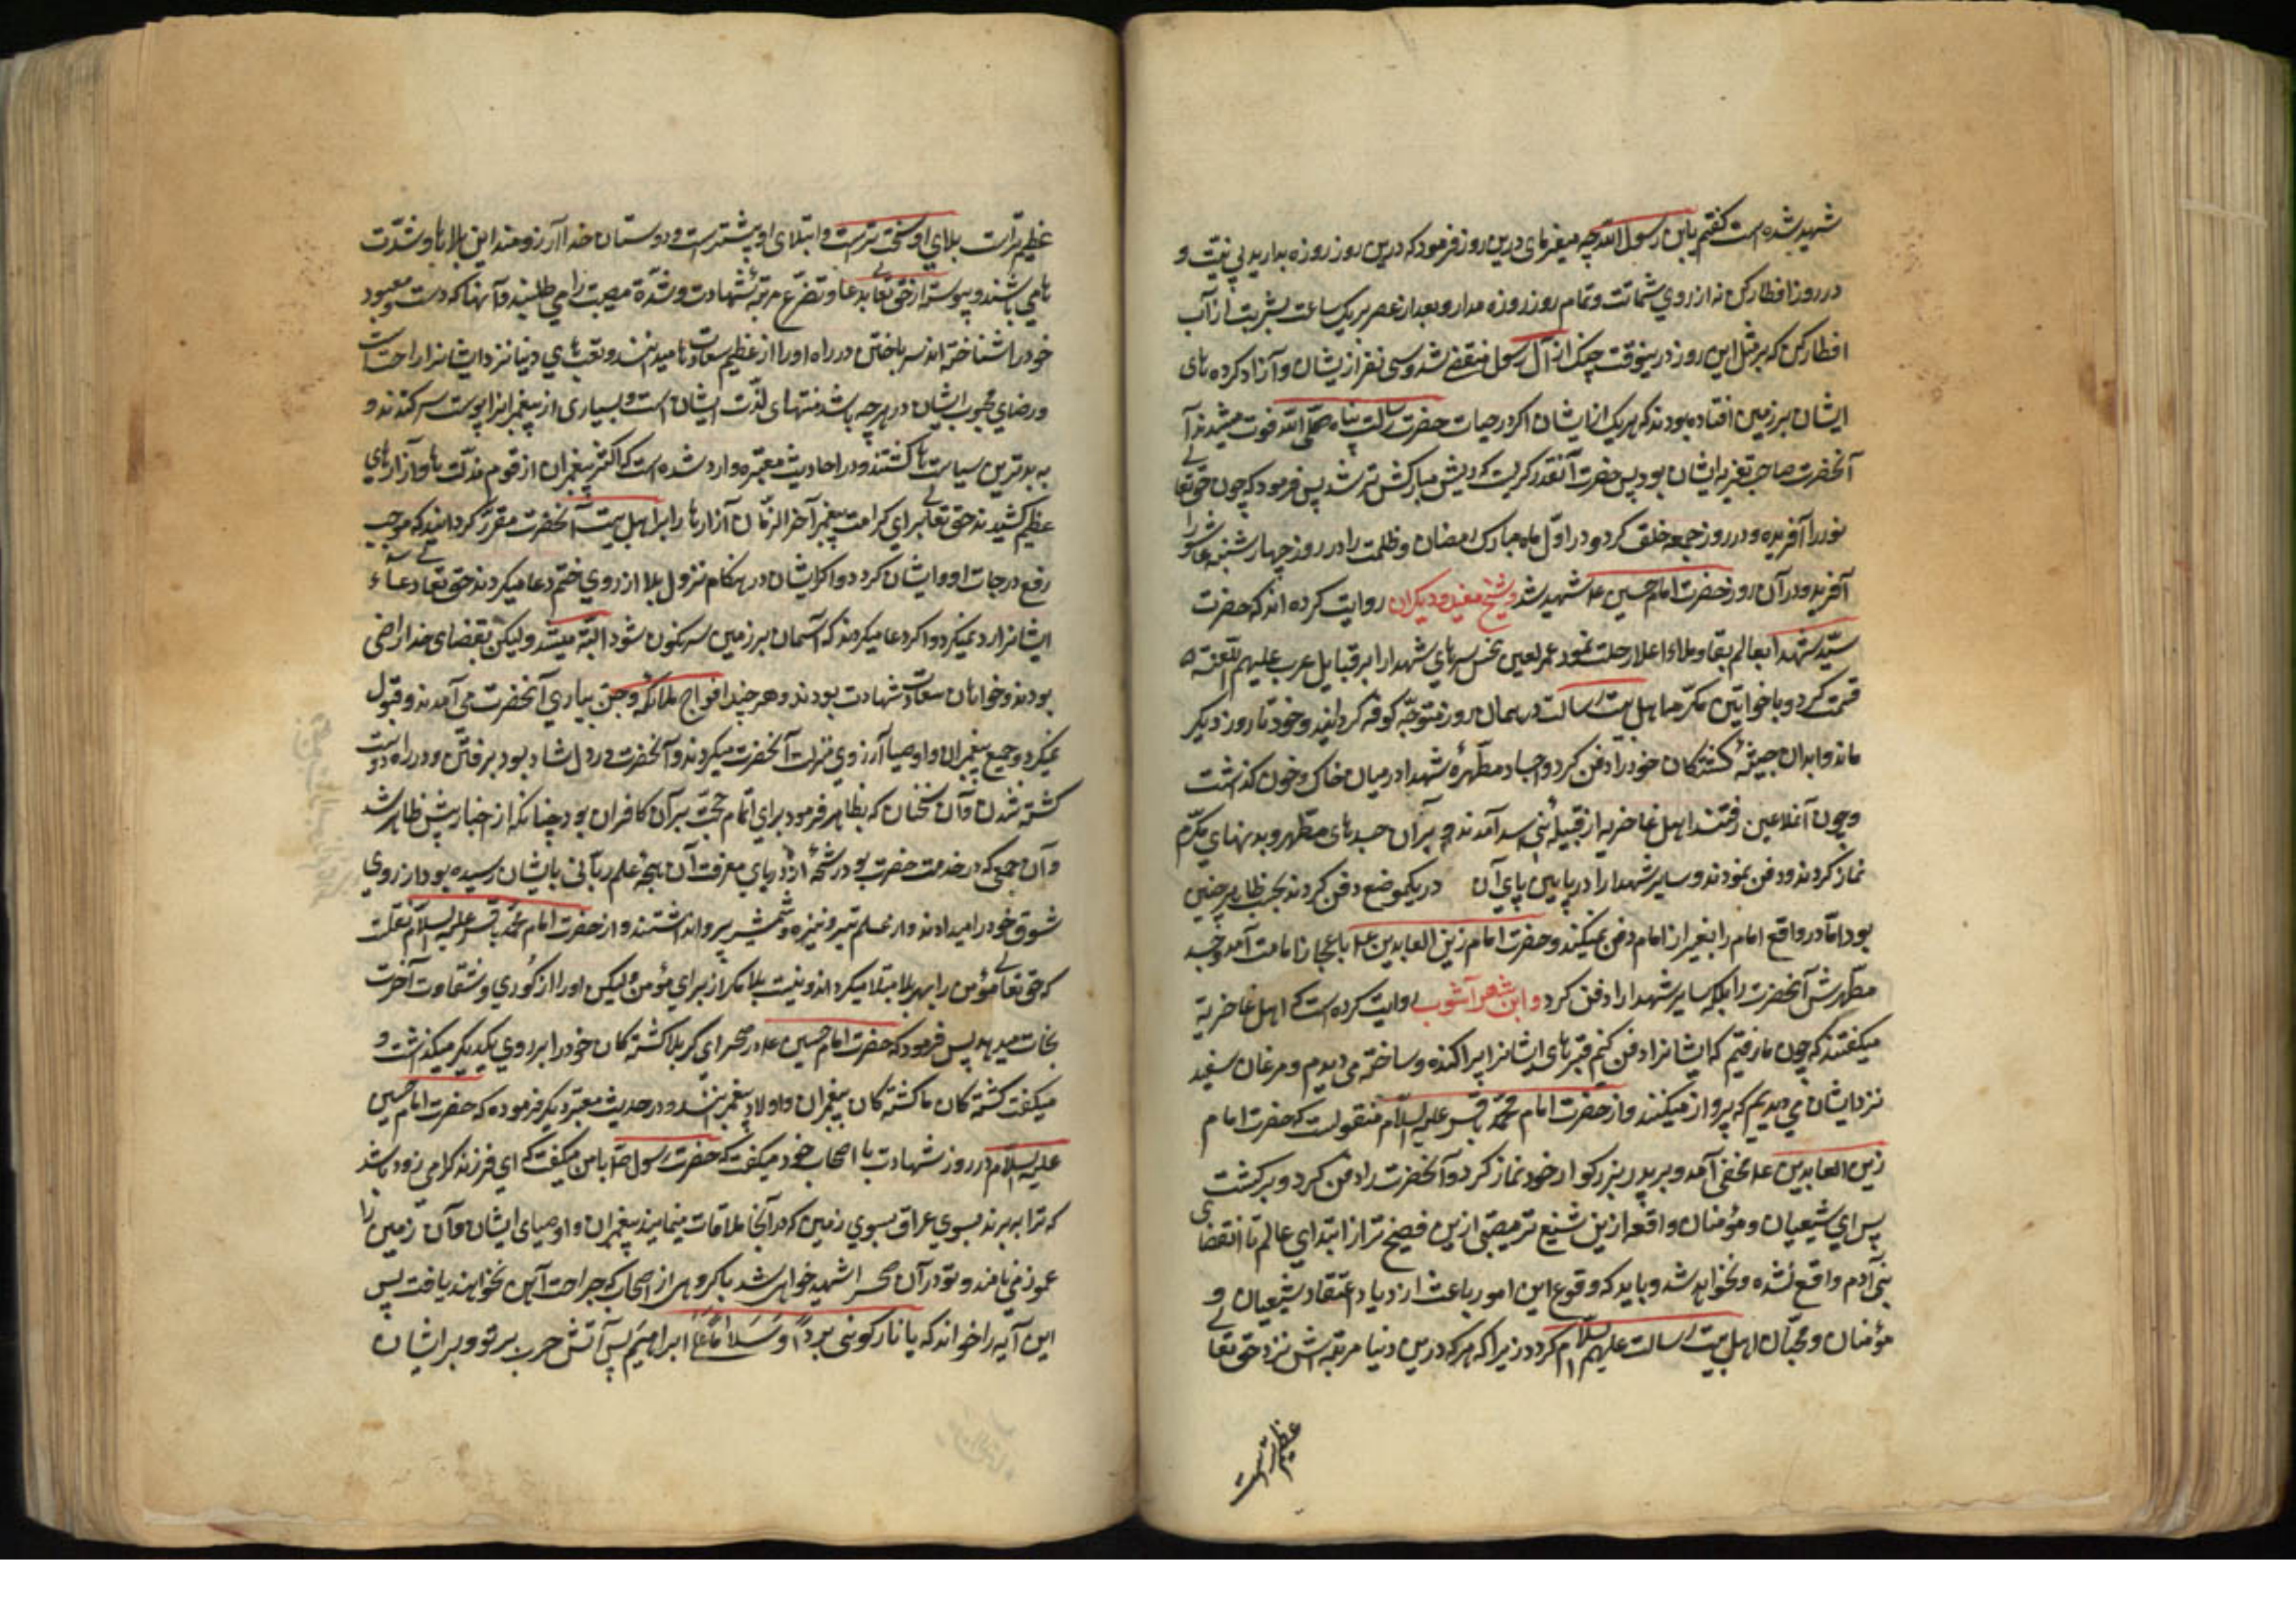 شهید شده است گفتم یابن رسول الله چه میفرمای درین روز فرمود که درین روز روزه بدارید بی نیت و
در روز افطار کن نه از روی شماتت و تمام روز روزه مدار و بعد از عصر بیک ساعت بشربت از آب
افطار کن که بر مثل این روز درینوقت جنک از آل رسول منقضی شد و سی نفر از یشان و آزاد کرده های
ایشان بر زمین افتاده بودند که هریک از ایشان اگر در حیات حضرت رسالت پناه صلی الله فوت میشدند آ
آنحضرت صاحب تعزیه ایشان بود پس حضرت آنقدر گریست که ریش مبارکش تر شد پس فرمود که چون حق تعالی
نور را آفریده و در روز جمعه خلق کرد و در اول ماه مبارک رمضان و ظلمت را در روز چهارشنبه عاشورا
آفرید و در آن روز حضرت امام حسین علیه شهید شد و شیخ مفید و دیگران روایت کرده اند که حضرت
سید شهدا بعالم بقا و ملاء اعلا رحلت نمود عمر لعین نحس سرهای شهدا را بر قبایل عرب علیهم اللعنة
قسمت کرد و با خواتین مکرمه اهل بیت رسالت در همان روز متوجه کوفه گردانید و خود تا روز دیگر
ماند و ابدان جیفه کشتگان خود را دفن کرد و اجساد مطهره شهدا در میان خاک و خون گذاشت
و چون آنملاعین رفتند اهل غاضریه از قبیله بنی اسد آمدند و بر آن جسدهای مطهر و بدنهای مکرم
نماز کردند و دفن نمودند و سایر شهدا را در پایین پای آن در یکموضع دفن کردند بحسب ظاهر چنین
بود اما در واقع امام را بغیر از امام دفن نمیکند و حضرت امام زین العابدین علیه باعجاز امامت آمد و جسد
مطهرش آنحضرت را بلکه سایر شهدا را دفن کرد و ابن شهر آشوب روایت کرده است که اهل غاضریه
میگفتند که چون ما رفتیم که ایشانرا دفن کنیم قبرهای ایشانرا پراکنده و ساخته می دیدیم و مرغان سفید
نزد ایشان می دیدیم که پرواز میکنند و از حضرت امام محمد باقر علیه السلام منقولست که حضرت امام
زین العابدین علیه مخفی آمد و بر پدر بزرگوار خود نماز کرد و آنحضرت را دفن کرد و برگشت
پس ای شیعیان و مؤمنان واقعه ازین شنیع تر مصیبتی ازین فصیح تر از ابتدای عالم تا انقضای
بنی آدم واقع نشده و نخواهد شد و باید که وقوع این امور باعث ازدیاد اعتقاد شیعیان و
مؤمنان و محبان اهل بیت رسالت علیهم السلام گردد زیرا که هر که درین دنیا مرتبه اش نزد حق تعالی
عظیم تر است
عظیم تر است بلای او سخت ترست و ابتلای او بیشترست و دوستان خدا آرزومند این بلاها و شدت
ها می باشند و پیوسته از حق تعالی بدعا و تضرع مرتبه شهادت و شدة مصیبت را می طلبند و آنها که دست معبود
خود را شناخته اند سر باختن در راه او را از عظیم سعادتها میدانند و تعب های دنیا نزد ایشانرا راحت است
و رضای محبوب ایشان در هر چه باشد منتهای لذت ایشان است و بسیاری از پیغمبرانرا پوست سر کندند و
به بدترین سیاست ها کشتند و در احادیث معتبره وارد شده است که اکثر پیغمبران از قوم مذلت ها و آزارهای
عظیم کشیدند حق تعالی برای کرامت پیغمبر آخر الزمان آزارها را بر اهل بیت آنحضرت مقرر گردانید که موجب
رفع درجات او و ایشان گردد و اگر ایشان در هنگام نزول بلا از روی ختم دعا میکردند حق تعالی دعاء
ایشانرا رد نمیکرد و اگر دعا میکردند که آسمان بر زمین سرنگون شود البته میشد ولیکن بقضای خدا راضی
بودند و خواهان سعادت شهادت بودند و هر چند افواج ملائکه و جن بیاری آنحضرت می آمدند و قبول
نمیکرد و جمیع پیغمبران و اوصیا آرزوی منزلت آنحضرت میکردند و آنحضرت در دل شاد بود برفتن و در راه دوست
کشته شدن و آن سخنان که بظاهر فرمود برای اتمام حجت بر آن کافران بود چنانکه از اخبار پیش ظاهر شد
و آن جمعی که در خدمت حضرت بود رشحه از دریای معرفت آن بهجه علم ربانی بایشان رسیده بود از روی
شوق خود را میدادند و از علم تیر و نیزه و شمشیر پروا نداشتند و از حضرت امام محمد باقر علیه السلام نقلست
که حق تعالی مؤمن را بهر بلا مبتلا میگرداند و نیست بلا مگر از برای مؤمن ولیکن او را از کوری و شقاوت آخرت
نجات میدهد پس فرمود که حضرت امام حسین علیه در صحرای کربلا کشته کان خود را بر روی یکدیگر میگذاشت و
میگفت کشته کان ما کشته کان پیغمبران و اولاد پیغمبرانند و در حدیث معتبر دیگر فرموده که حضرت امام حسین
علیه السلام در روز شهادت با اصحاب خود میگفت که حضرت رسول ص با من میگفت که ای فرزند گرامی زود باشد
که ترا ببرند بسوی عراق بسوی زمین که در آنجا ملاقات مینمایند پیغمبران و اوصیای ایشان و آن زمین را
عمورا می نامند و تو در آن صحرا شهید خواهی شد با گروهی از اصحاب که جراحت آهن نخواهند یافت پس
این آیه را خواند که یا نار کونی بردا و سلاما علی ابراهیم پس آتش حرب بر تو و بر ایشان